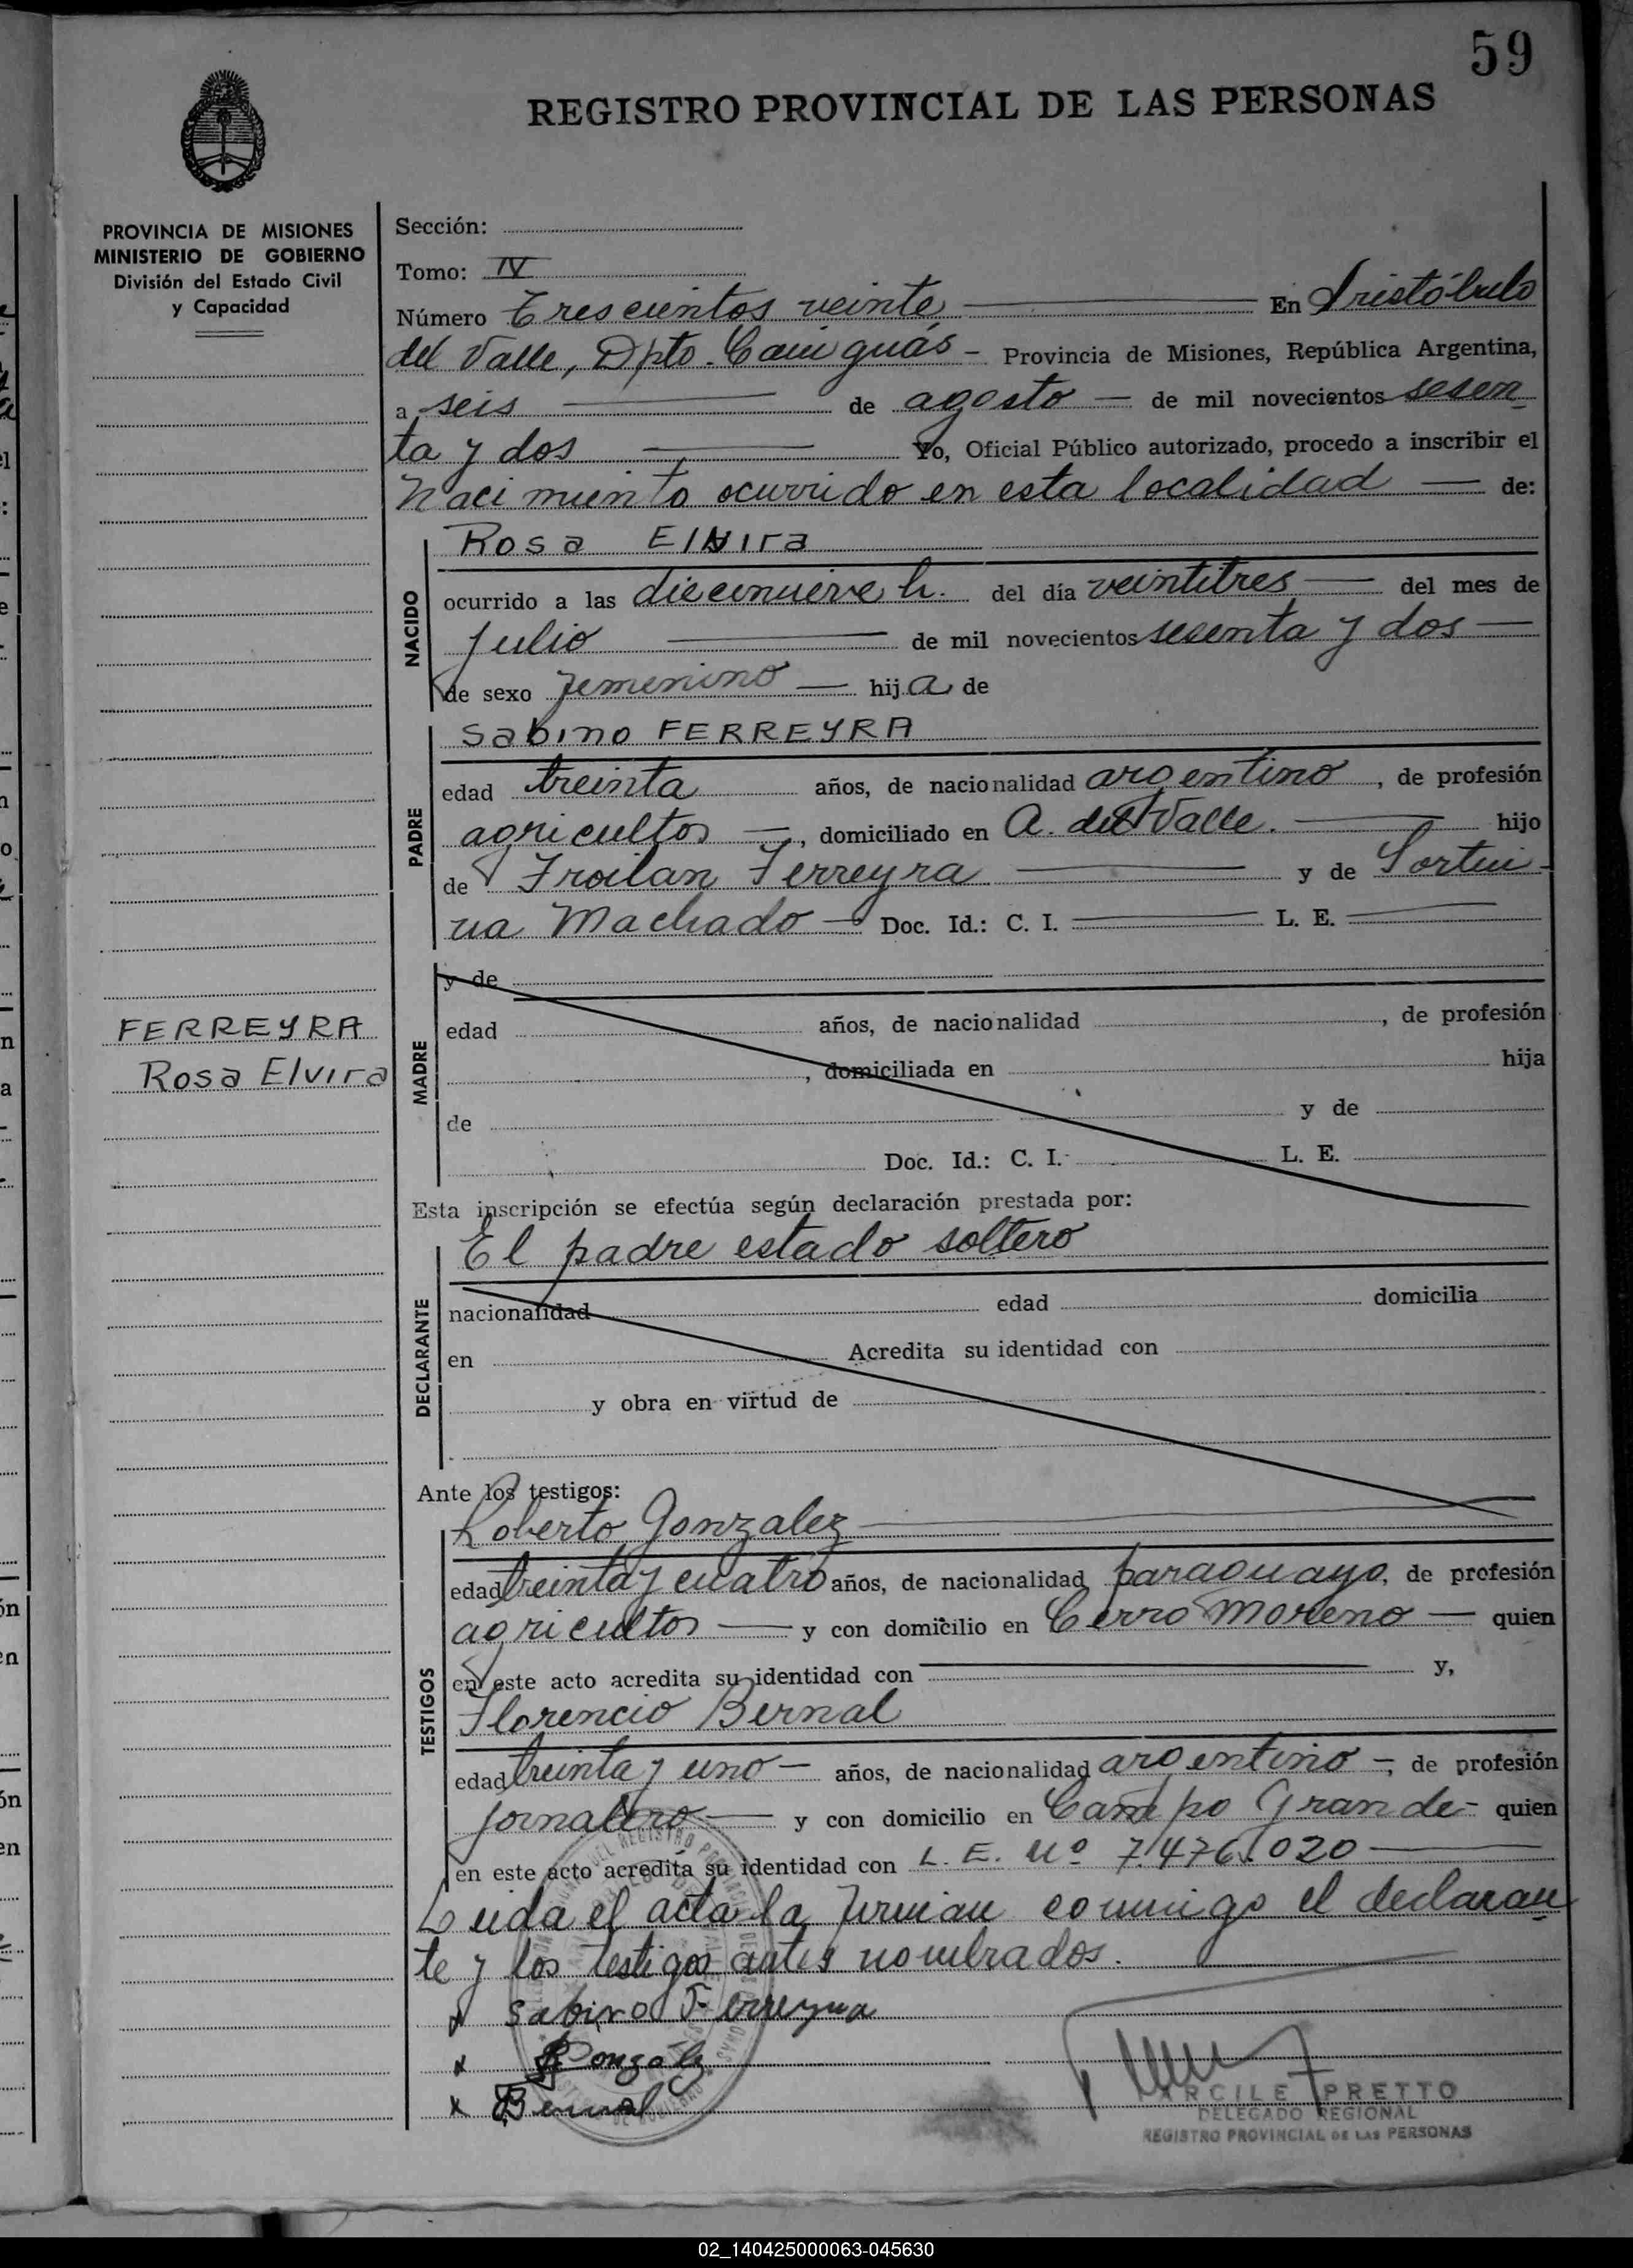 59
REGISTRO PROVINCIAL DE LAS PERSONAS
PROVINCIA DE MISIONES
MINISTERIO DE GOBIERNO
División del Estado Civil
y Capacidad
FERREYRA
Rosa Elvira
Sección:
Tomo: IV
Número Trescientos veinte En Aristóbulo
del Valle, Dpto. Cainguás - Provincia de Misiones, República Argentina,
a seis de agosto de mil novecientos sesen-
ta y dos Yo, Oficial Público autorizado, procedo a inscribir el
Nacimiento ocurrido en esta localidad de:
NACIDO
Rosa Elvira
ocurrido a las diecinueve h. del día veintitres del mes de
julio de mil novecientos sesenta y dos
de sexo femenino hija de
PADRE
Sabino FERREYRA
edad treinta años, de nacionalidad argentino, de profesión
agricultor, domiciliado en A. del Valle. hijo
de Froilan Ferreyra y de
Machado Doc. Id.: C. I. L. E.
MADRE
y de
edad años, de nacionalidad , de profesión
, domiciliada en hija
de y de
Doc. Id.: C. I. L. E.
Esta inscripción se efectúa según declaración prestada por:
DECLARANTE
El padre estado soltero
nacionalidad edad domicilia
en Acredita su identidad con
y obra en virtud de
Ante los testigos:
TESTIGOS
Roberto Gonzalez
edad treinta y cuatro años, de nacionalidad paraguayo, de profesión
agricultor y con domicilio en Cerro Moreno quien
en este acto acredita su identidad con y,
Florencio Bernal
edad treinta y uno años, de nacionalidad argentino -, de profesión
jornalero y con domicilio en Campo Grande - quien
en este acto acredita su identidad con L. E. Nº 7.476.020
Leida el acta la firman conmigo el declaran-
te y los testigos antes nombrados.
x Sabino Ferreyra
x
x Bernal
ARCILE PRETTO
DELEGADO REGIONAL
REGISTRO PROVINCIAL DE LAS PERSONAS
02_140425000063-045630